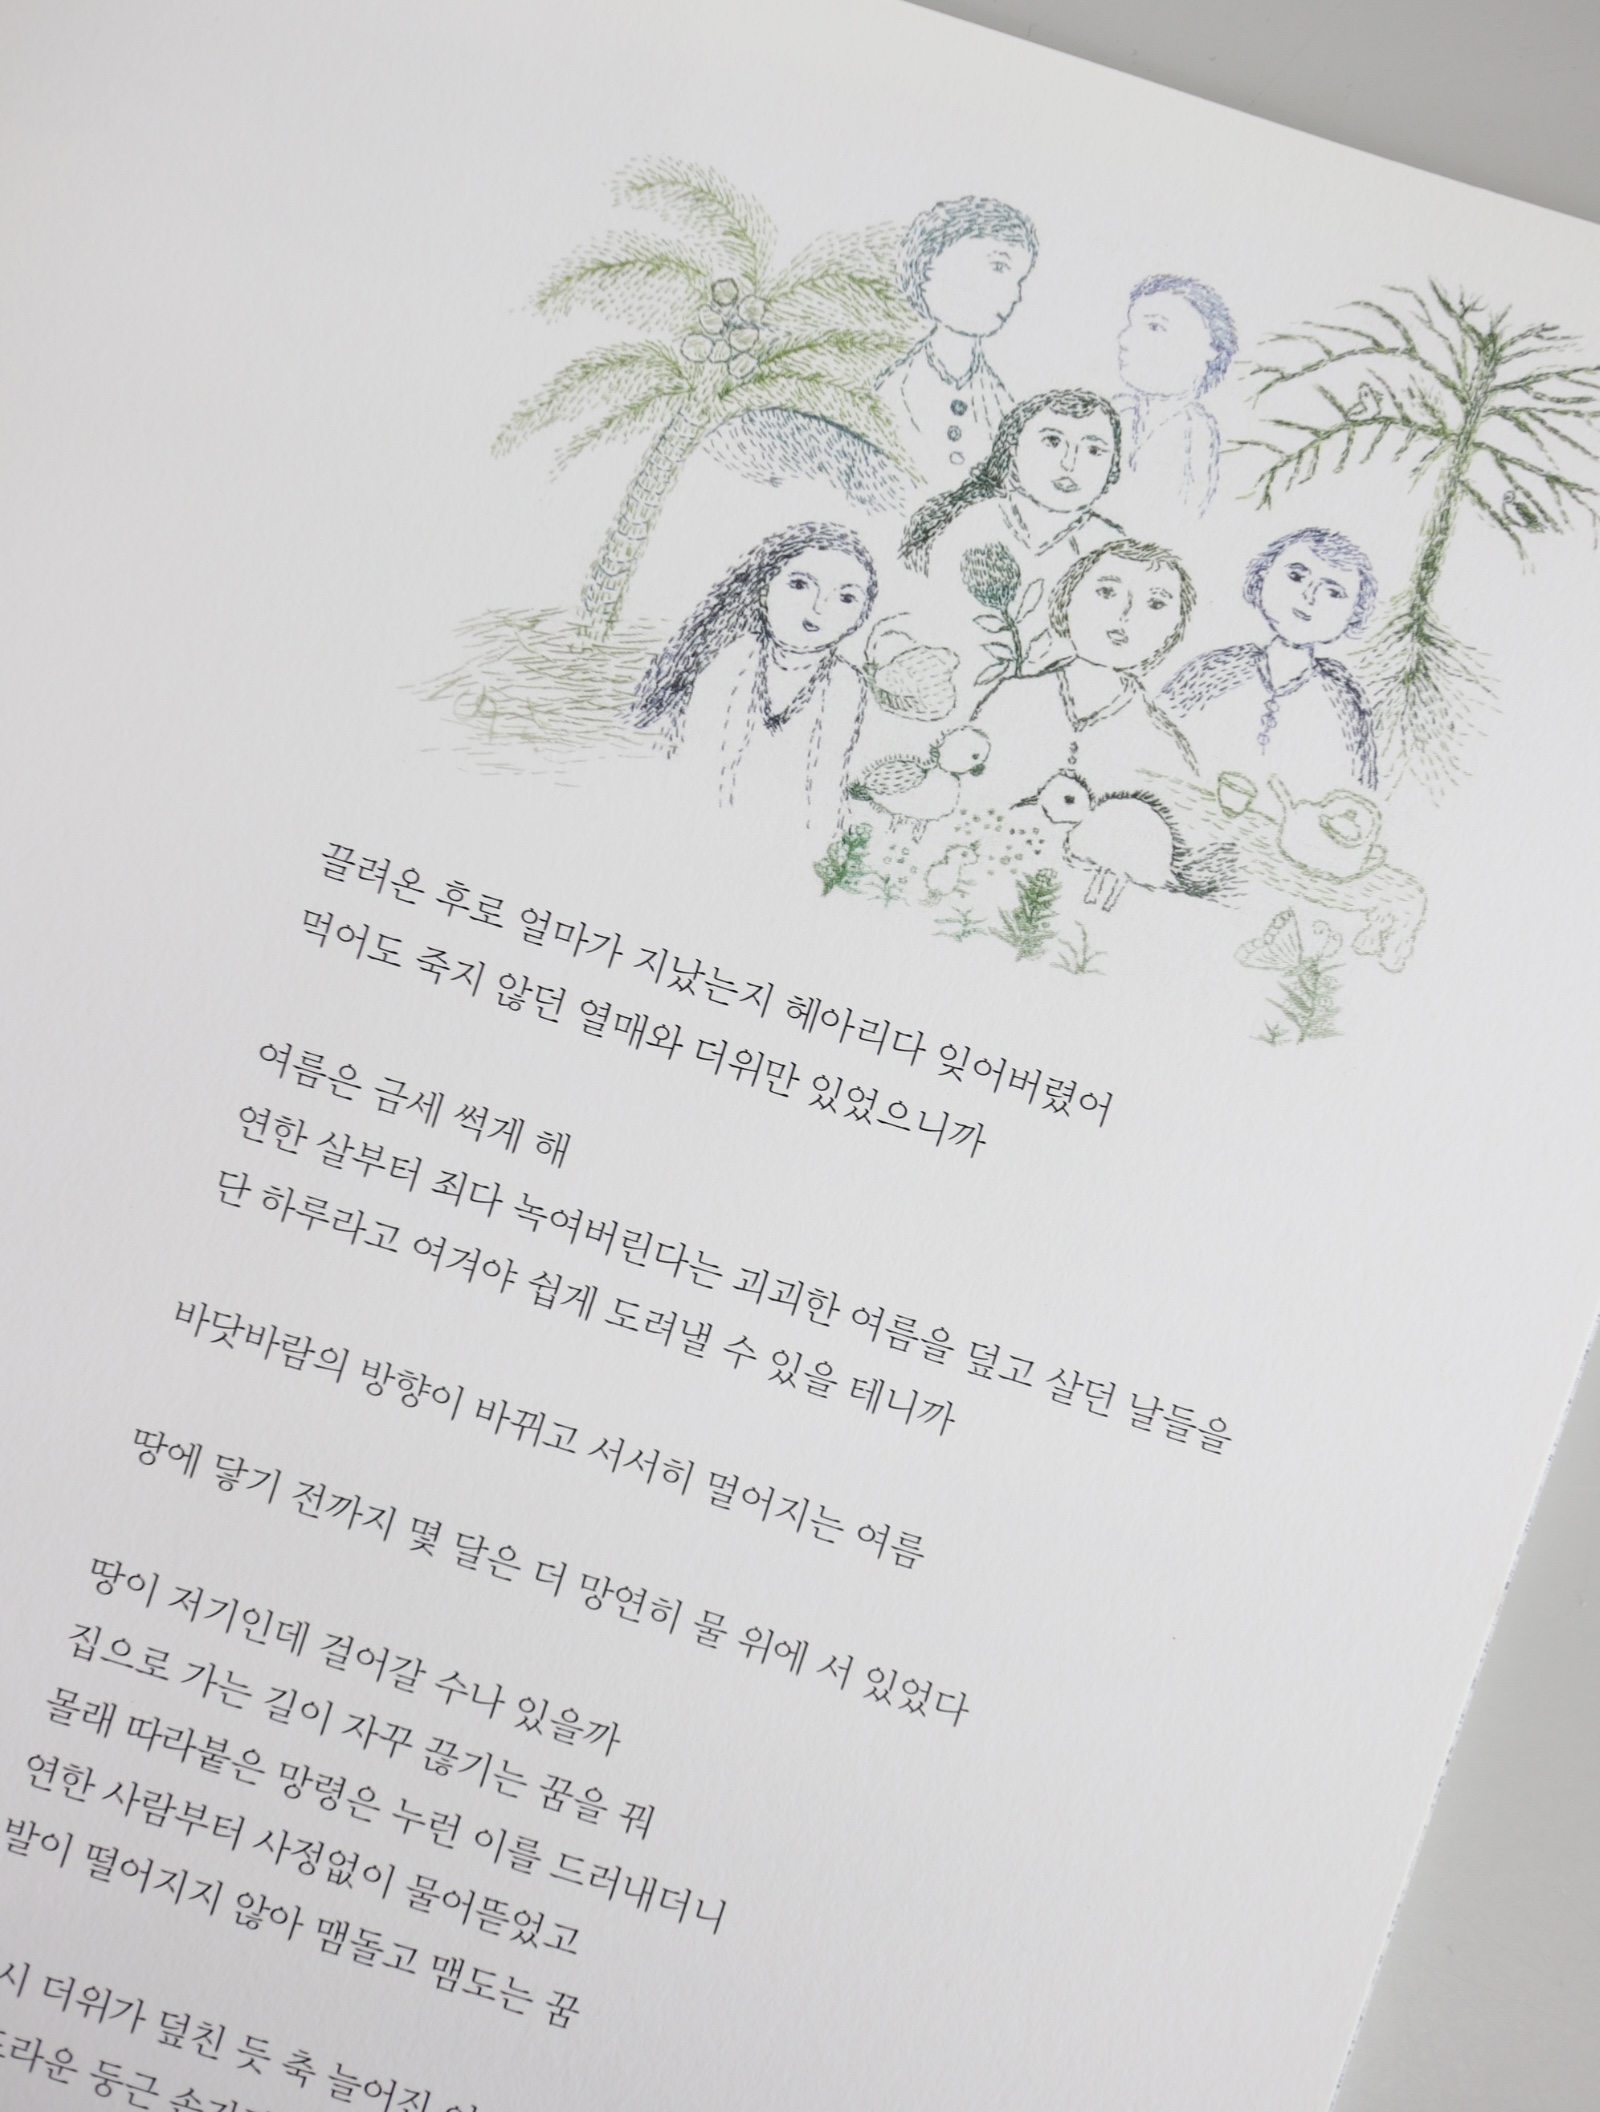 끌려온 후로 얼마가 지났는지 헤아리다 잊어버렸어
먹어도 죽지 않던 열매와 더위만 있었으니까
여름은 금세 썩게 해
연한 살부터 죄다 녹여버린다는 괴괴한 여름을 덮고 살던 날들을
단 하루라고 여겨야 쉽게 도려낼 수 있을 테니까
바닷바람의 방향이 바뀌고 서서히 멀어지는 여름
땅에 닿기 전까지 몇 달은 더 망연히 물 위에 서 있었다
땅이 저기인데 걸어갈 수나 있을까
집으로 가는 길이 자꾸 끊기는 꿈을 꿔
몰래 따라붙은 망령은 누런 이를 드러내더니
연한 사람부터 사정없이 물어뜯었고
발이 떨어지지 않아 맴돌고 맴도는 꿈
시 더위가 덮친 듯 축 늘어진
둥근